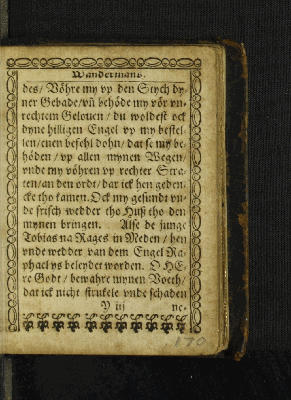 Wandermans.
des / Vöhre my vp den Stych dy-
ner Gebade / vñ behöde my vör vn-
rechtem Gelouen / du woldest ock
dyne hilligen Engel vp my bestel-
len / euen befehl dohn / dat se my be-
höden / vp allen mynen Wegen /
vnde my vöhren vp rechter Stra-
ten / an den ordt / dar ick hen geden-
cke tho kamen. Ock my gesundt vn-
de frisch wedder tho Huß tho den
mynen bringen. Alse de junge
Tobias na Rages in Meden / hen
vnde wedder van dem Engel Ra-
phael ys beleydet worden. O HE-
re Godt / bewahre mynen Voeth /
dat ick nicht strukele vnde schaden
Y iij ne-
170